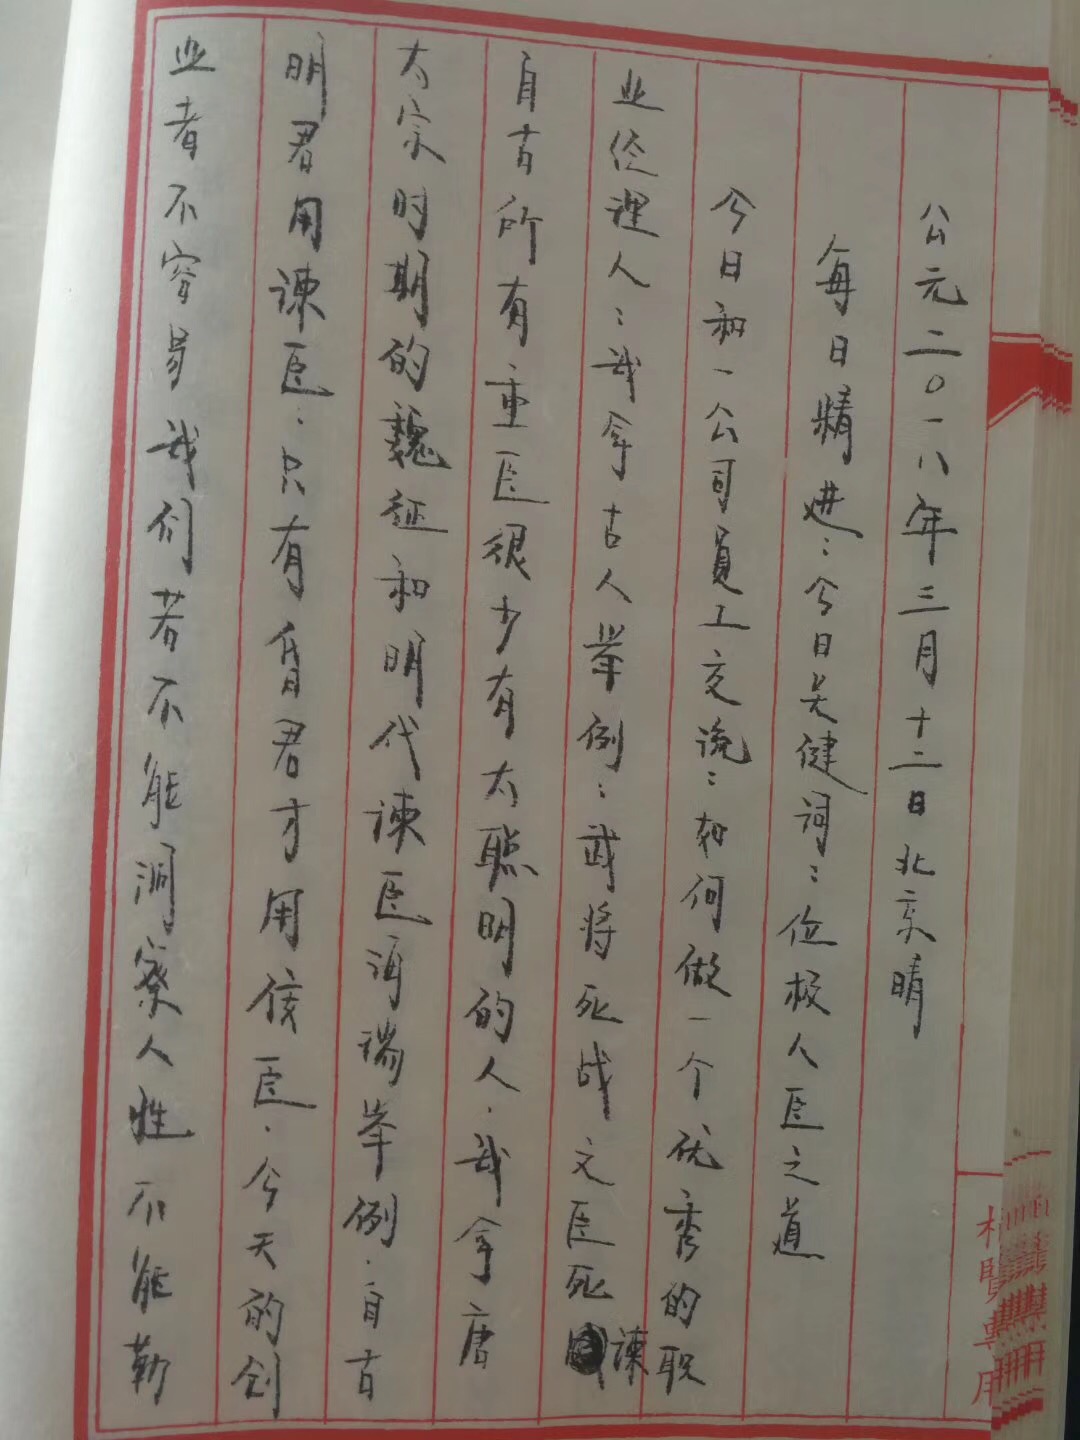 公元二〇一八年三月十二日北京晴
每日精进：今日关健词：位极人臣之道
今日和一公司員工交流：如何做一个优秀的职
业伦理人：我拿古人举例：武将死战文臣死谏
自古所有重臣很少有太聪明的人．我拿唐
太宗时期的魏征和明代谏臣海瑞举例．自古
明君用谏臣：只有昏君才用佞臣．今天的创
业者不容易我们若不能洞察人性不能勒